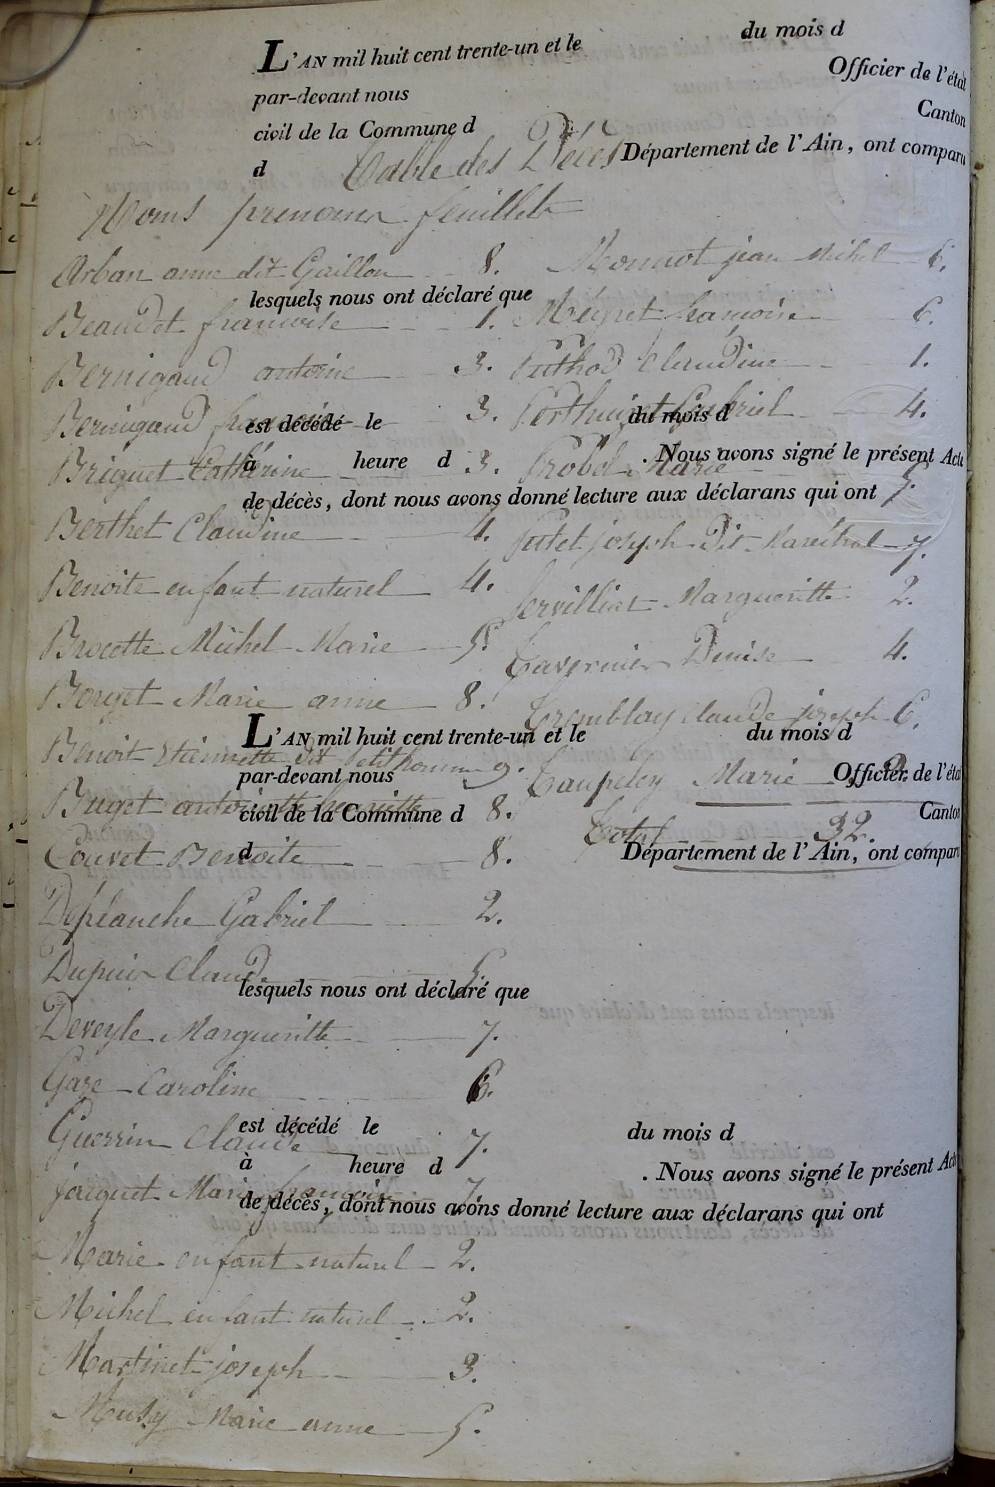 L'AN mil huit cent trente-un et le du mois d
par-devant nous Officier de l'état
civil de la Commune d Canton
d Département de l'Ain, ont comparu
Table des Décès
Noms prenoms feuillets
Arban anne dit Gaillou 8.
lesquels nous ont déclaré que
Beaudet francoise 1.
Bernigaud antoine 3.
Bernigaud 3.
est décédé le du mois d
à heure d . Nous avons signé le présent Acte
Briguet Catherine 3.
de décès, dont nous avons donné lecture aux déclarans qui ont
Berthet Claudine 4.
Benoite enfant naturel 4.
Brocette Michel Marie 5.
Borget Marie anne 8.
L'AN mil huit cent trente-un et le du mois d
Benoit Etiennette dit petithomme 9.
par-devant nous Officier de l'état
Buget 8.
civil de la Commune d Canton
Couvet Benoite 8.
d Département de l'Ain, ont comparu
Deplanche Gabriel 2.
Dupuis Claude 5.
lesquels nous ont déclaré que
Deveyle Margueritte 7.
Gaze Caroline 6.
est décédé le du mois d
Guerrin Claude 7.
à heure d . Nous avons signé le présent Acte
joiguet Marie francoise 7.
de décès, dont nous avons donné lecture aux déclarans qui ont
Marie enfant naturel 2.
Michel enfant naturel 2.
Martinet joseph 3.
Musy Marie anne 5.
Monnot jean Michel 6.
françoise 6.
Puthod Claudine 1.
Gabriel 4.
Probel Marie 5.
Putet joseph dit Maréchal 7.
Servillat Margueritte 2.
Tavernier Denise 4.
Tremblay claude joseph 6.
Marie 2.
Total 32.